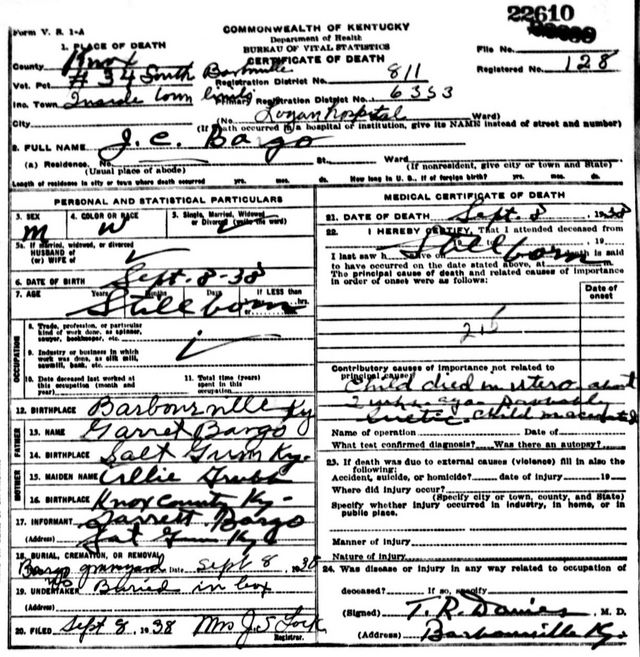 22610
Form V. S. 1-A
COMMONWEALTH OF KENTUCKY
Department of Health
BUREAU OF VITAL STATISTICS
CERTIFICATE OF DEATH
File No.
Registered No. 128
1. PLACE OF DEATH
County Knox
Vot. Pct. #34 South Barbourville
Registration District No. 811
Inc. Town Inside town limits
Primary Registration District No. 6353
City
(No. Logan hospital Ward)
(If death occurred in a hospital or institution, give its NAME instead of street and number)
2. FULL NAME J. C. Bargo
(a) Residence. No. St. Ward
(Usual place of abode) (If nonresident, give city or town and State)
Length of residence in city or town where death occurred yrs. mos. ds. How long in U. S., if of foreign birth? yrs. mos. ds.
PERSONAL AND STATISTICAL PARTICULARS
3. SEX
M
4. COLOR OR RACE
W
5. Single, Married, Widowed or Divorced (write the word)
5a. If married, widowed, or divorced
HUSBAND of
(or) WIFE of
6. DATE OF BIRTH Sept-8-38
7. AGE Years Months Days If LESS than
Stillborn
OCCUPATION
8. Trade, profession, or particular
kind of work done, as spinner,
sawyer, bookkeeper, etc.
9. Industry or business in which
work was done, as silk mill,
sawmill, bank, etc.
10. Date deceased last worked at
this occupation (month and
year)
11. Total time (years)
spent in this
occupation
12. BIRTHPLACE Barbourville Ky
FATHER
13. NAME Garret Bargo
14. BIRTHPLACE Salt Gum Ky.
MOTHER
15. MAIDEN NAME
16. BIRTHPLACE Knox County Ky-
17. INFORMANT Garrett Bargo
(Address)
18. BURIAL, CREMATION, OR REMOVAL
Bargo graveyard Date Sept 8 1938
19. UNDERTAKER No Buried in box
(Address)
20. FILED Sept 8, 1938 Mrs J. S. Lock
Registrar.
MEDICAL CERTIFICATE OF DEATH
21. DATE OF DEATH Sept. 8, 1938
22. I HEREBY CERTIFY, That I attended deceased from
Stillborn, 19
I last saw h alive on is said
to have occurred on the date stated above, at m.
The principal cause of death and related causes of importance
in order of onset were as follows:
Date of
onset
Contributory causes of importance not related to
principal cause:
Child died in utero about
2 wks. ago. Probably
luetic. Child macerated
Name of operation Date of
What test confirmed diagnosis? Was there an autopsy?
23. If death was due to external causes (violence) fill in also the
following:
Accident, suicide, or homicide? date of injury 19
Where did injury occur?
(Specify city or town, county, and State)
Specify whether injury occurred in industry, in home, or in
public place.
Manner of injury
Nature of injury
24. Was disease or injury in any way related to occupation of
deceased? If so, specify
(Signed) T. R. Davies, M. D.
(Address) Barbourville Ky.